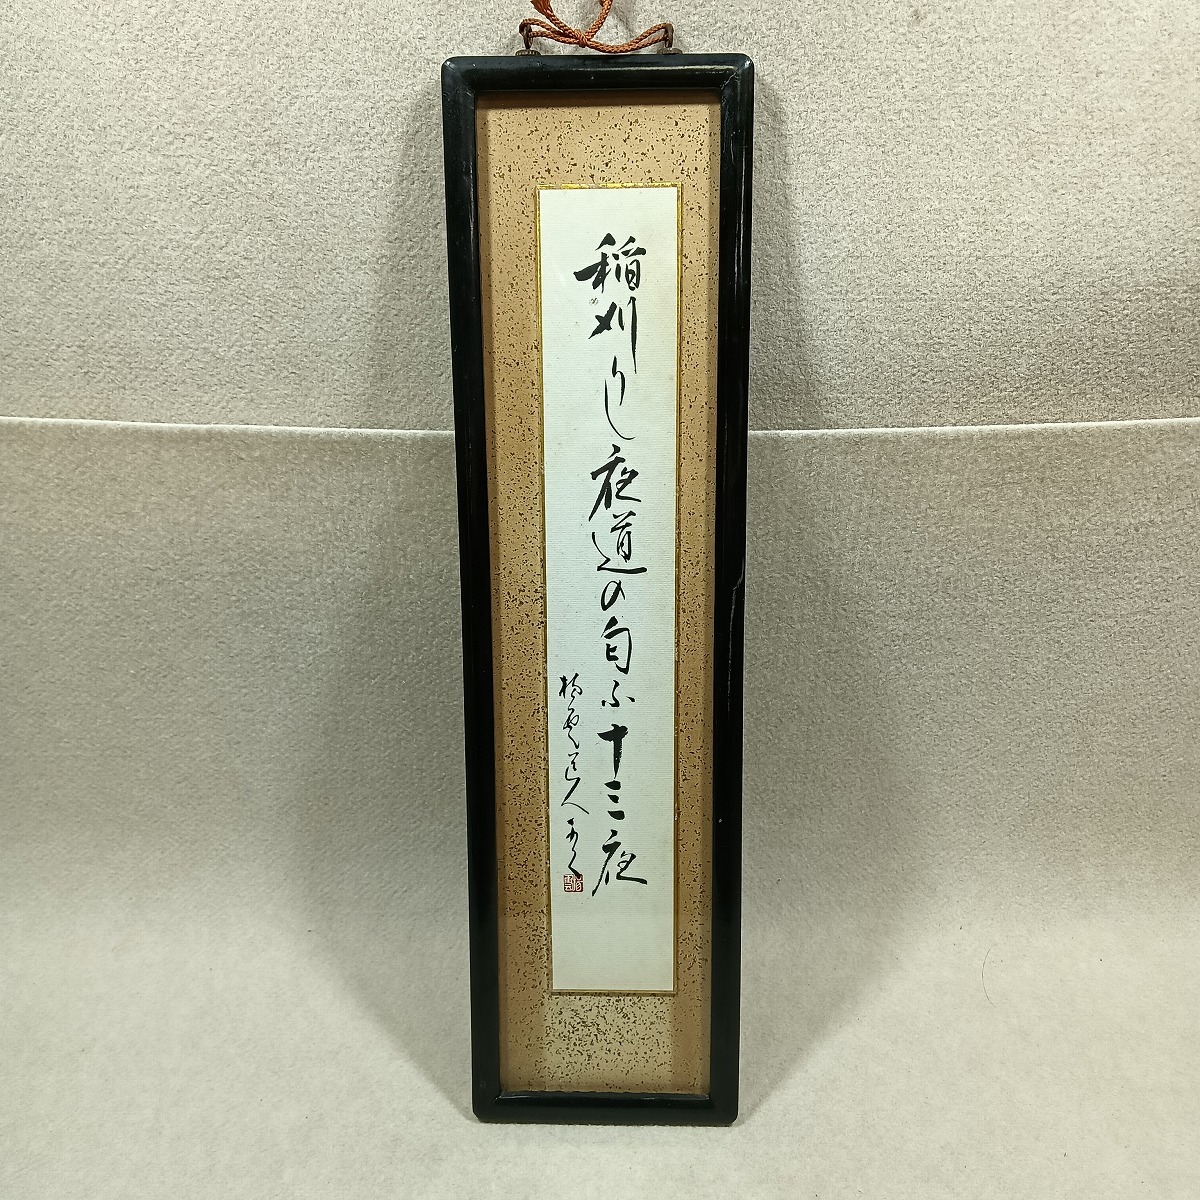 稲刈りし夜道の匂ふ十三夜